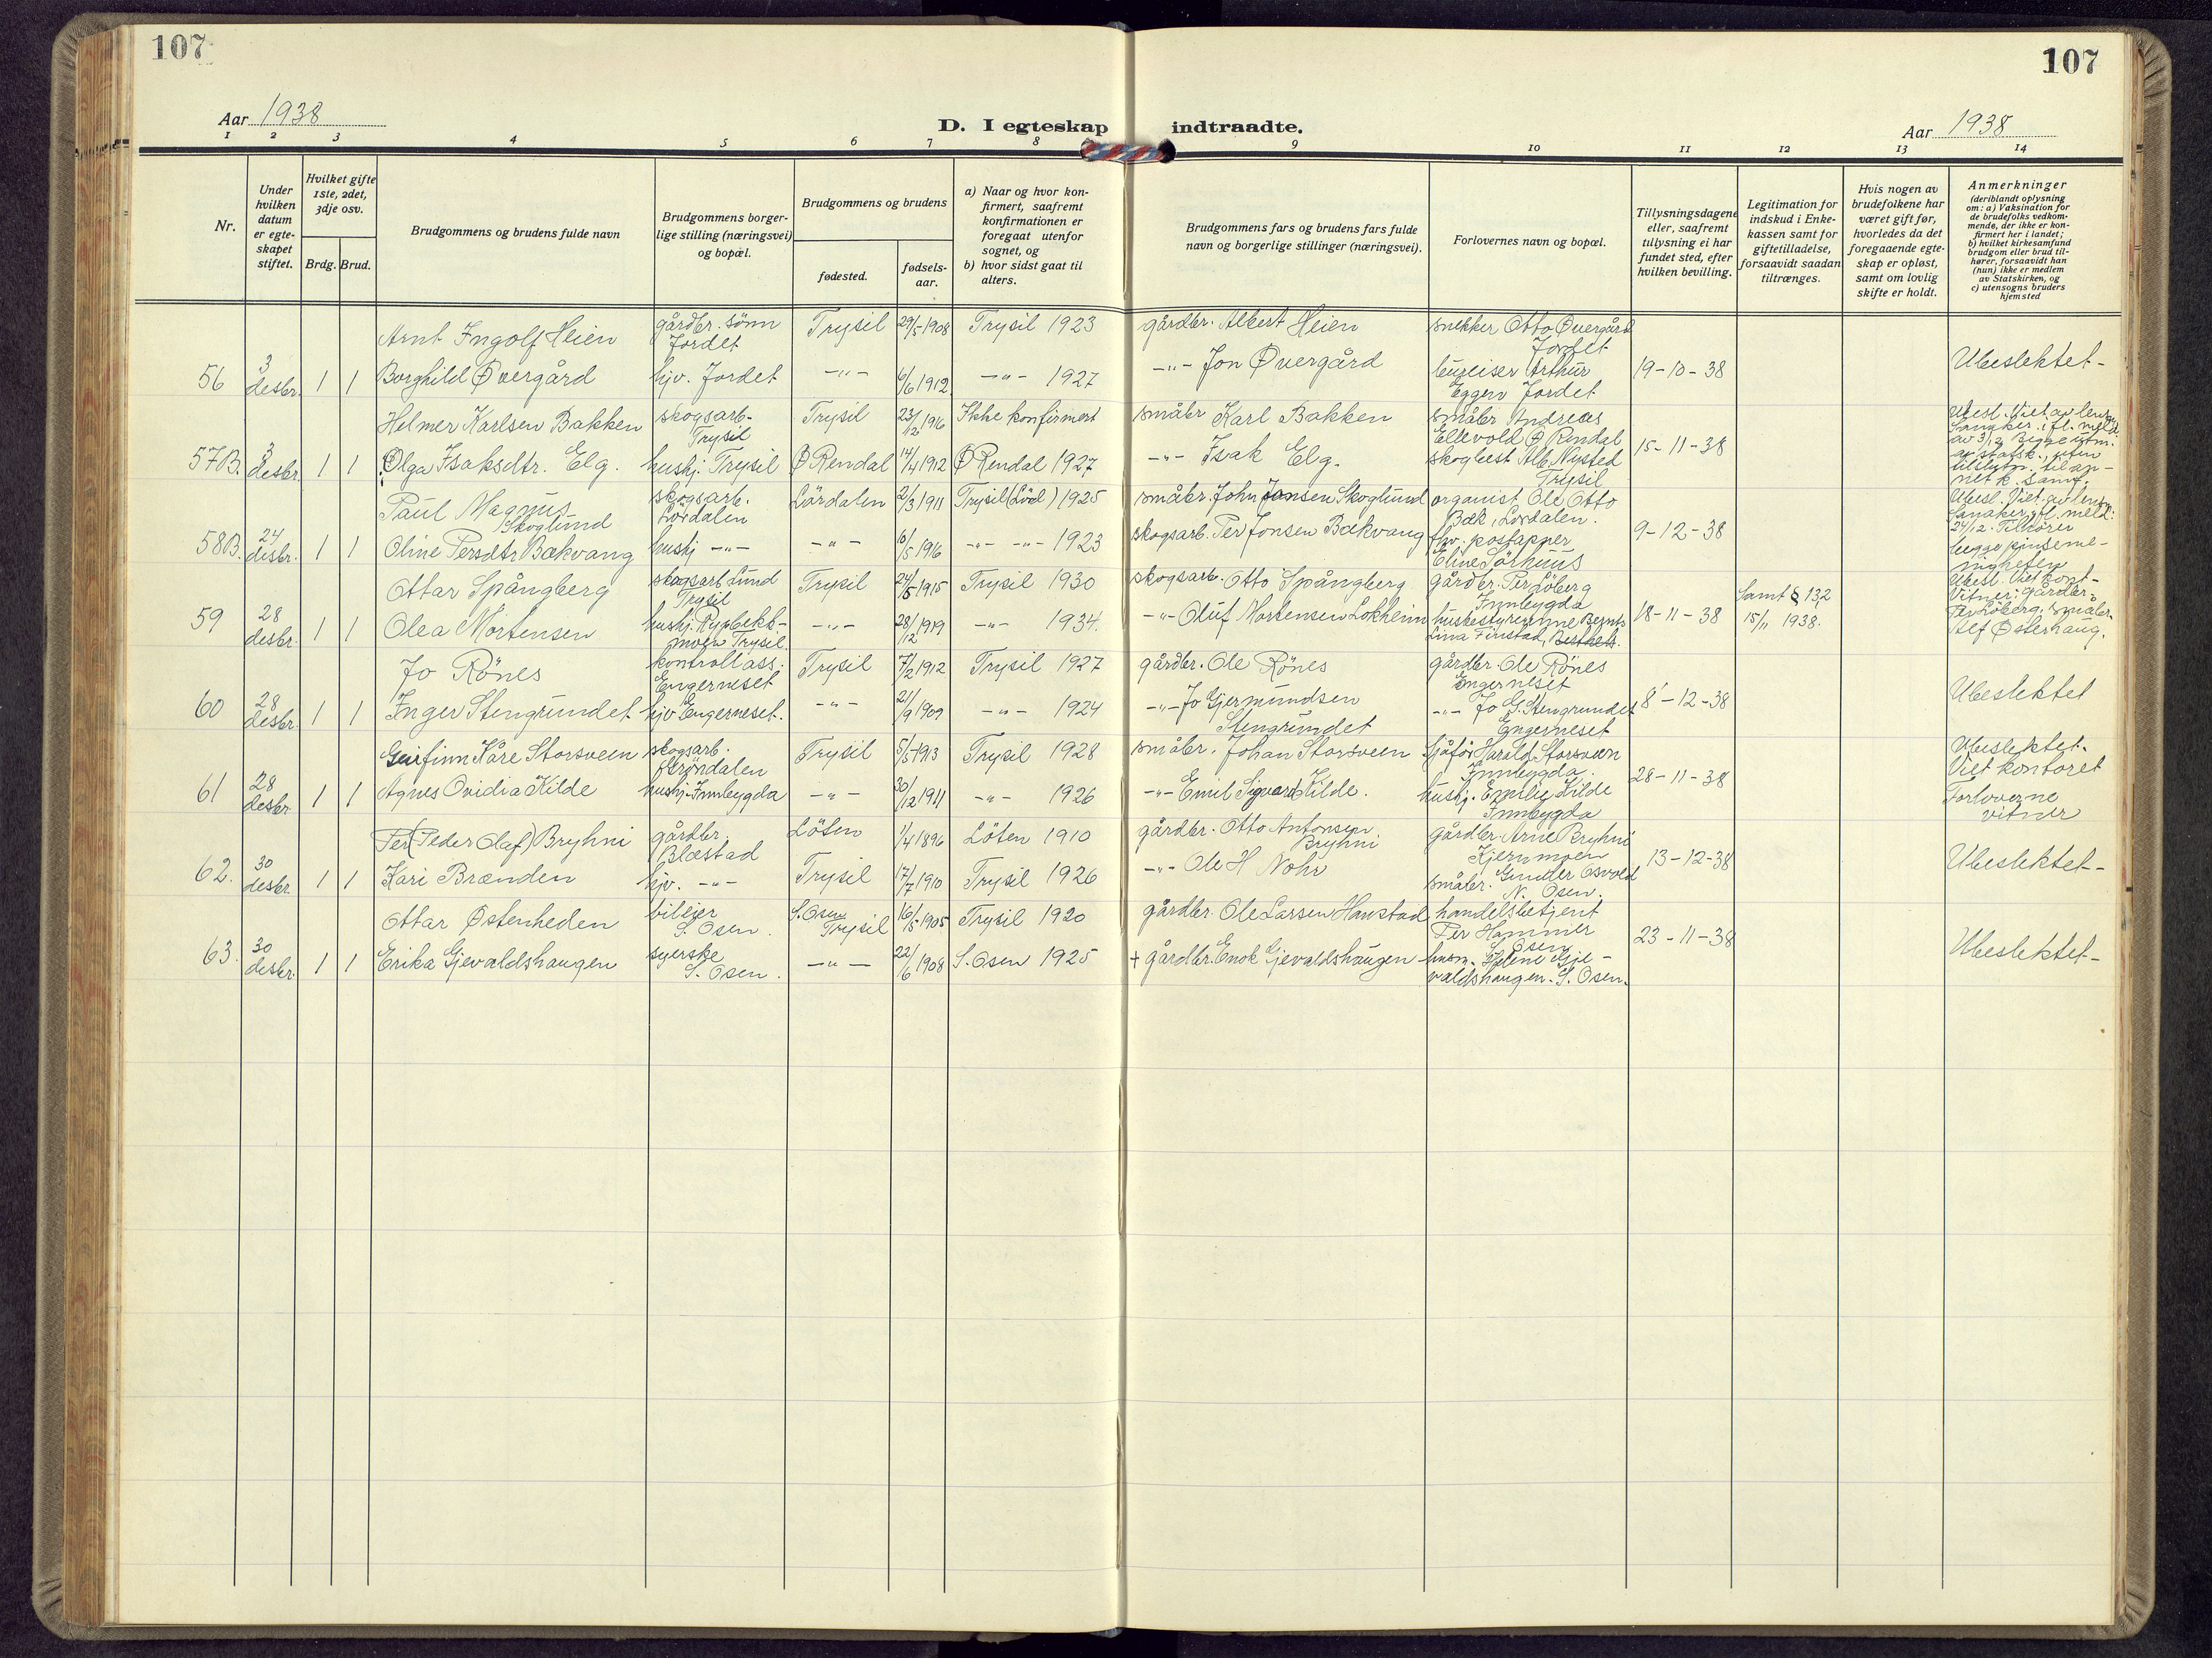 107
107
Aar 1938
D. I egteskap indtraadte.
Aar 1938
1 2 3 4 5 6 7 8 9 10 11 12 13 14
Nr.
Under hvilken datum er egte-skapet stiftet.
Hvilket gifte 1ste, 2det, 3dje osv.
Brdg. Brud.
Brudgommens og brudens fulde navn
Brudgommens borger-lige stilling (næringsvei) og bopæl.
Brudgommens og brudens
fødested.
fødsels-aar.
a) Naar og hvor kon-firmert, saafremt konfirmationen er foregaat utenfor sognet, og
b) hvor sidst gaat til alters.
Brudgommens fars og brudens fars fulde navn og borgerlige stillinger (næringsvei).
Forlovernes navn og bopæl.
Tillysningsdagene eller, saafremt tillysning ei har fundet sted, efter hvilken bevilling.
Legitimation for indskud i Enke-kassen samt for giftetilladelse, forsaavidt saadan tiltrænges.
Hvis nogen av brudefolkene har været gift før, hvorledes da det foregaaende egte-skap er opløst, samt om lovlig skifte er holdt.
Anmerkninger (deriblandt oplysning om: a) Vaksination for de brudefolks vedkom-mende, der ikke er kon-firmert her i landet; b) hvilket kirkesamfund brudgom eller brud til-hører, forsaavidt han (hun) ikke er medlem av Statskirken, og c) utensogns bruders hjemsted
Arnt Ingolf Heien gårdbr. sönn Jordet Trysil 29/5 1908 Trysil 1923 gårdbr. Albert Heien snekker Otto Øvergård Jordet
56 3 desbr. 1 1 Borghild Øvergård hjv. Jordet -"- 6/6 1912 -"- 1927 -"- Jon Øvergård bureiser Arthur Eggen Jordet 19-10-38 Ubeslektet-
Helmer Karlsen Bakken skogsarb- Trysil Trysil 23/12 1916 Ikke konfirmert småbr Karl Bakken småbr Andreas Ellevold Ø Rendal
57B. 3 desbr. 1 1 Olga Isaksdtr. Elg. hushj. Trysil Ø Rendal 14/4 1912 Ø Rendal 1927 -"- Isak Elg. skogbest Alb. Nysted Trysil 15-11-38 Ubesl. Viet av av 3/12 Begge utm. av statsk., uten tilslutn. til an-net k. samf.
Paul Magnus Skoglund skogsarb. Lördalen Lördalen 2/3 1911 Trysil (Löd) 1925 småbr. John Jansen Skoglund organist Ole Otto Bæk, Lördalen.
58B. 24 desbr. 1 1 Oline Persdtr Bækvang hushj -"- -"- 10/5 1916 -"- -"- 1923 skogsarb. Per Jonsen Bækvang fhv. postapper Eline Sörhuus 9-12-38 Ubesl. Viet av lens meld. 24/12. Tilhörer begge pinseme-nigheten
Ottar Spångberg skogsarb Lund Trysil Trysil 24/5 1915 Trysil 1930 skogsarb. Otto Spångberg gårdbr. Per Löberg Innbygda
59 28 desbr. 1 1 Olea Mortensen hushj. moen Trysil. -"- 28/12 1919 -"- 1934. -"- Oluf Mortensen Lokheim husbestyrerinne Lina Finstad, 18-11-38 Samt § 132 15/11 1938. Ubesl. Viet kont- Vitner: gårdbr. Per Löberg, småbr. Alf Østerhaug.
Jo Rönes kontrollass. Engerneset Trysil 7/2 1912 Trysil 1927 gårdbr. Ole Rönes gårdbr. Ole Rönes Engerneset
60 28 desbr. 1 1 Inger Stengrundet hjv Engerneset. -"- 21/9 1909 -"- 1924 -"- Jo Gjermundsen Stengrundet -"- Jo G. Stengrundet Engerneset 8-12-38 Ubeslektet
Geirfinn Kåre Storsveen skogsarb. Gröndalen Trysil 5/5 1913 Trysil 1928 småbr. Johan Storsveen sjåför Harald Storsveen Innbygda.
61 28 desbr 1 1 Agnes Ovidia Kilde hushj. Innbygda -"- 30/12 1911 -"- 1926 -"- Emil Sigvard Kilde. hushj. Emelie Kilde Innbygda 28-11-38 Ubeslektet. Viet kontoret Forloverne vitner
Per (Peder Olaf) Bryhni gårdbr. Blæstad Löten 1/4 1896 Löten 1910 gårdbr. Otto Antonsen Bryhni gårdbr. Arne Bryhni Kjernmoen
62. 30 desbr 1 1 Kari Brænden hjv. -"- Trysil 17/7 1910 Trysil 1926 -"- Ole H Nohr småbr. Gunder Osvold N. Osen. 13-12-38 Ubeslektet-
Ottar Østenheden bileier S. Osen. S. Osen Trysil 16/5 1905 Trysil 1920 gårdbr. Ole Larsen Haustad handelsbetjent Per Hammer S. Osen
63. 30 desbr. 1 1 Erika Gjevaldshaugen syerske S. Osen. -"- 22/6 1908 S. Osen 1925 + gårdbr. Enok Gjevaldshaugen husm. Helene Gje-valdshaugen. S. Osen. 23-11-38 Ubeslektet-